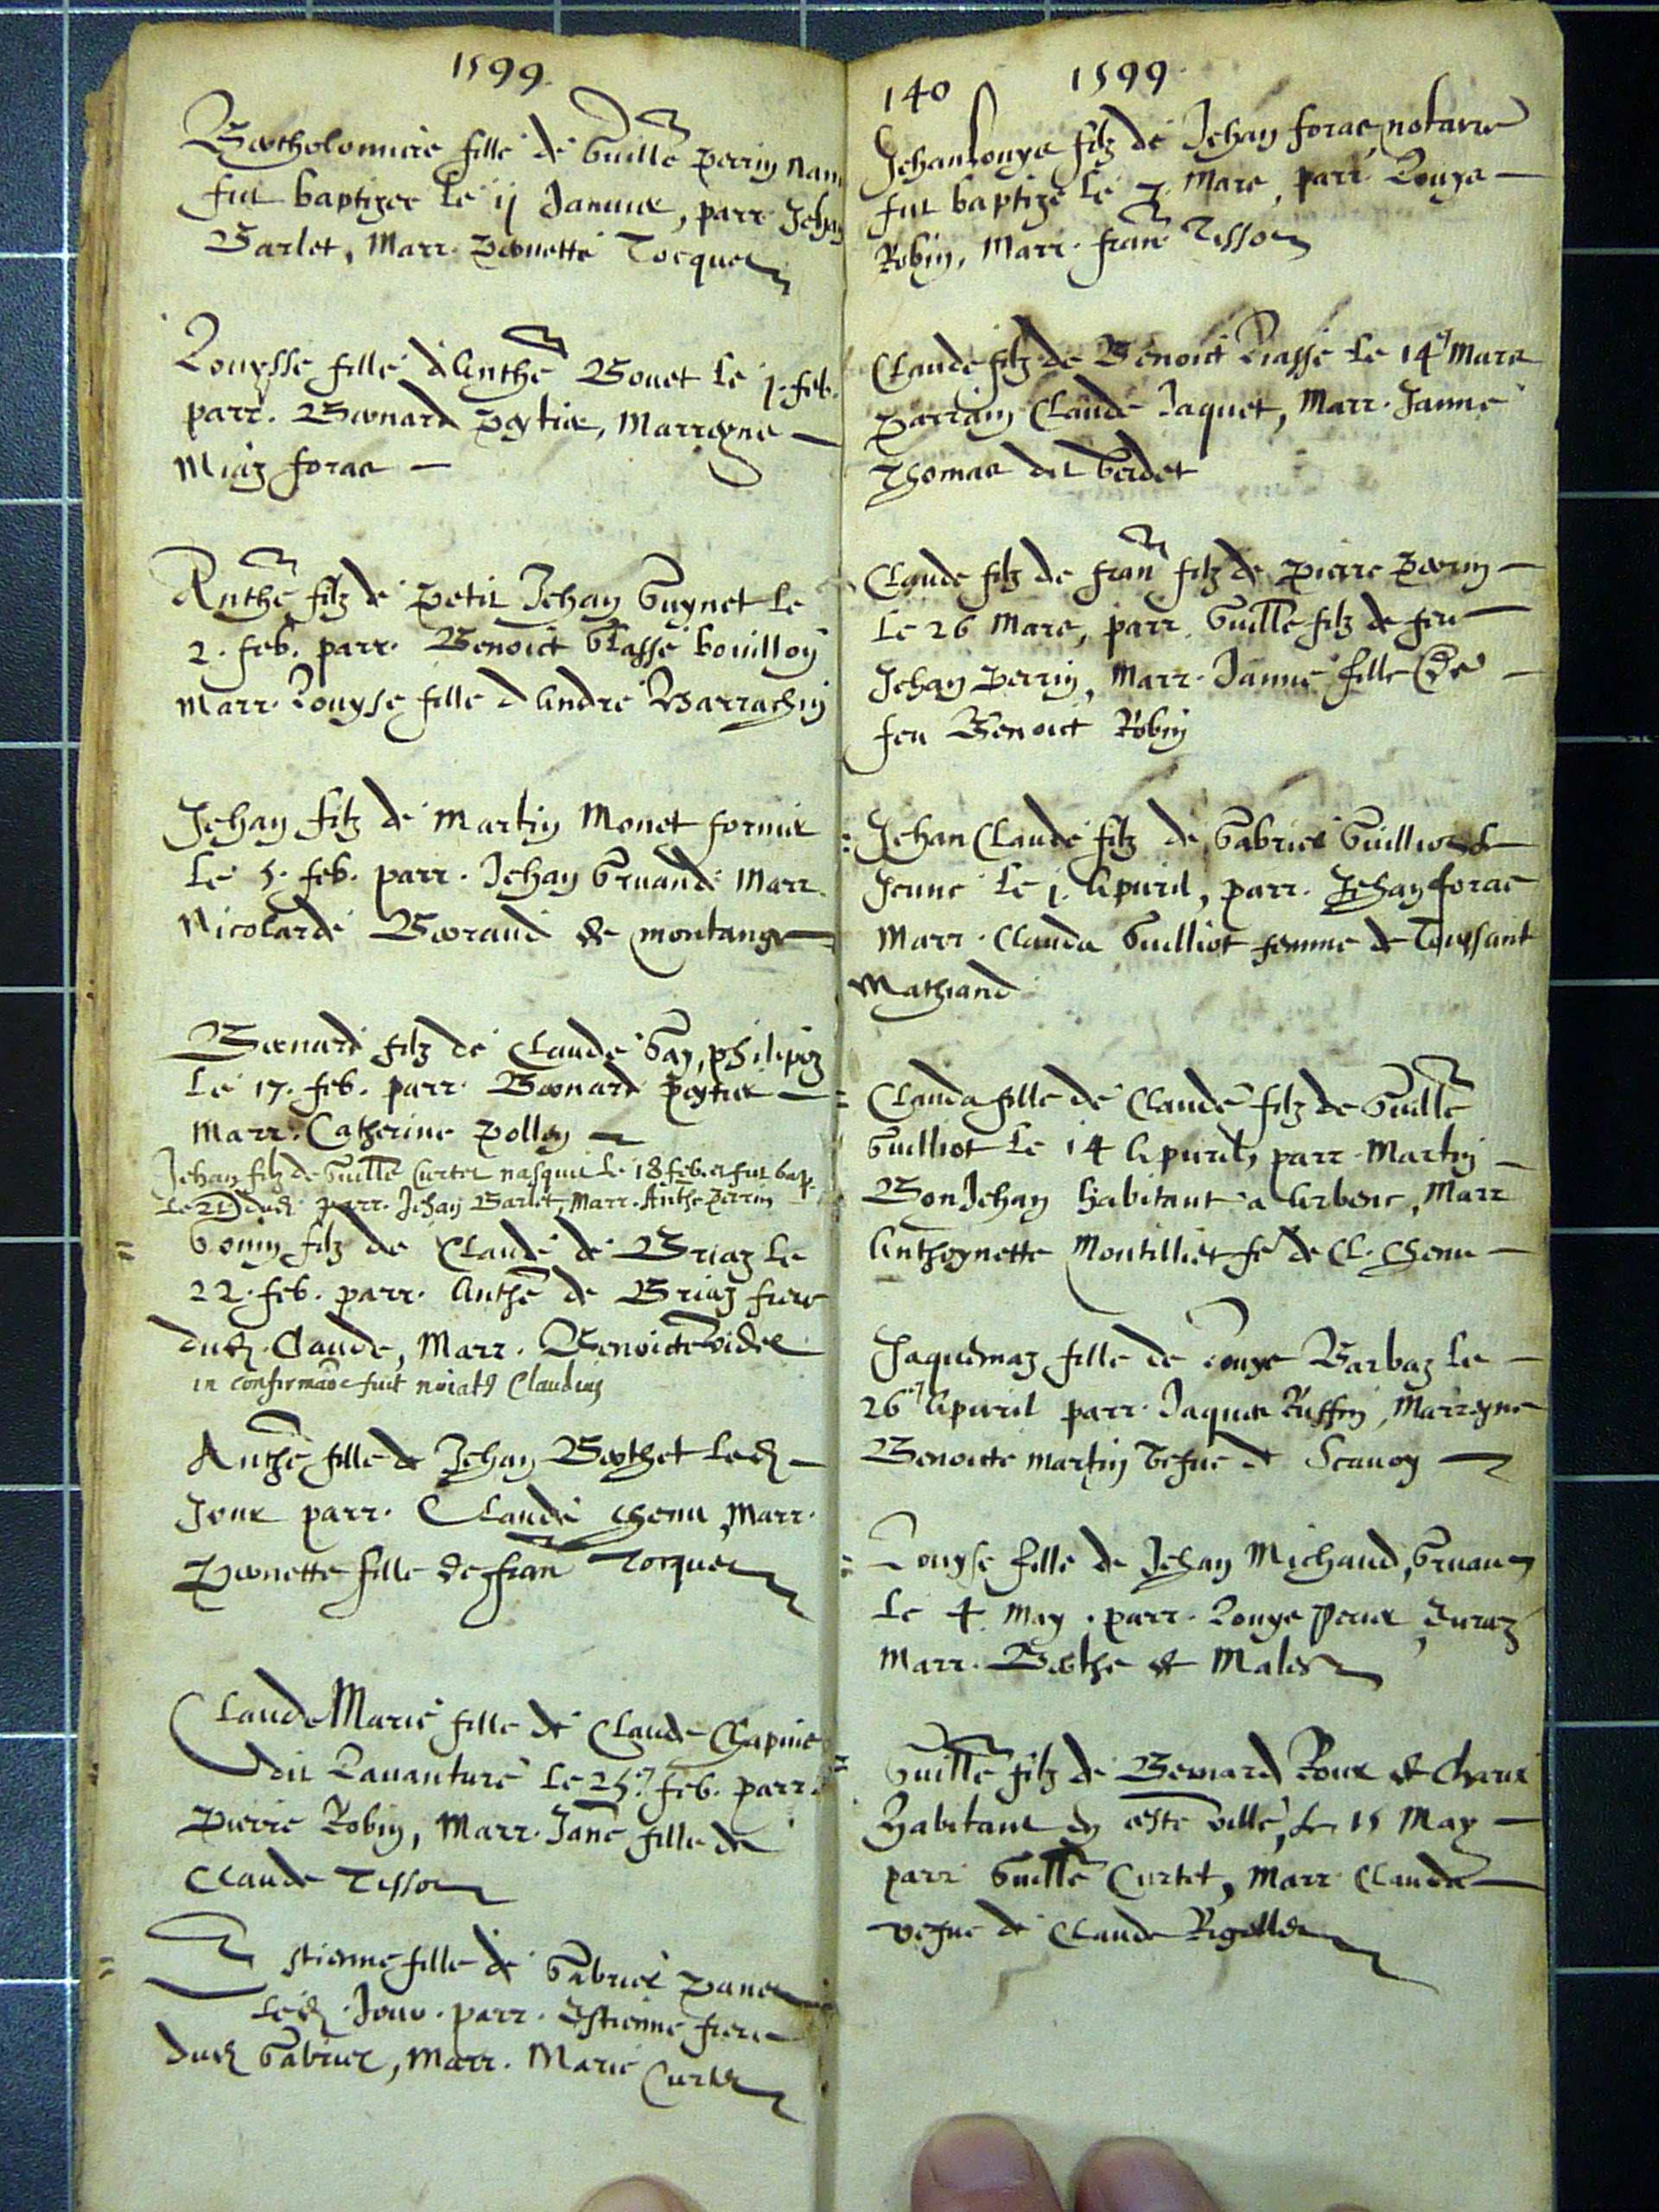 1599.
Bertholomiere fille de Guille Perrin
fut baptizee le ij Januier, parr. Jehan
Barlet, Marr. Pernette Tocquet
Louysse fille d'Anthe Bouet le j. feb.
parr. Bernard Peytier, Marreyne
Miaz foras
Anthe filz de petit Jehan Guynet le
2. feb. parr. Benoict Classe bouilloy
Marr. Louyse fille d'Andre Barrachin
Jehan filz de Martin Monet fornier
le 5. feb. parr. Jehan Gruande Marr.
Nicolarde Beraud de montange
Bernard filz de Claude Gay, philipoz
le 17. feb. parr. Bernard Peytier
Marr. Catherine Pollen
Jehan filz de Guille Curtet nasquit le 18 feb. et fut bap.
le 21 dud. parr. Jehan Barlet, Marr. Anthe Perrin
Gonin filz de Claude de Briaz le
22. feb. parr. Anthe de Briaz frere
dud. Claude, Marr. Benoicte Vidal
in confirmaoe fuit noiatq Claudius
Anthe fille de Jehan Berthet led.
Jour parr. Claude Chenu, Marr.
Pernette fille de fran Tocquet
Claude Marie fille de Claude Chapuis
dit Lauanture le 25e feb. parr.
Pierre Robin, Marr. Jane fille de
Claude Tissot
Estienne fille de Gabriel Panet
led. Jour. parr. Estienne frere
dud. Gabriel, Marr. Marie Curtet
140 1599.
Jehan Louys filz de Jehan foras notaire
fut baptize le 7. Mars, parr. Louys
Robin, Marr. fran Tissot
Claude filz de Benoict Classe le 14e Mars
parrain Claude Jaquet, Marr. Janne
Thomas dit Verdet
Claude filz de fran filz de Pierre Perrin
le 26 Mars, parr. Guille filz de feu
Jehan Perrin, Marr. Janne fille de
feu Benoict Robin
Jehan Claude filz de Gabriel Guilliot
Jeune le j. Apuril, parr. Jehan foras
Marr. Clauda Guilliot femme de Toussant
Mathiand
Clauda fille de Claude filz de Guille
Guilliot le 14 Apuril, parr. Martin
Bon Jehan habitant a Arbent, Marr
Anthoynette Montilliet fe de Cl. Chenu
Jaquemaz fille de Louys Barbaz le
26e Apuril parr. Jaques Ruffin, Marreyne
Benoicte Martin vefue de
Louyse fille de Jehan Michaud, Gruan
le 4. May. parr. Louys
Marr. Berthe de Males
Guille filz de Bernard Roux de Charix
habitant en ceste ville, le 15 May
parr Guille Curtet, Marr Clauda
vefue de Claude Rigollet